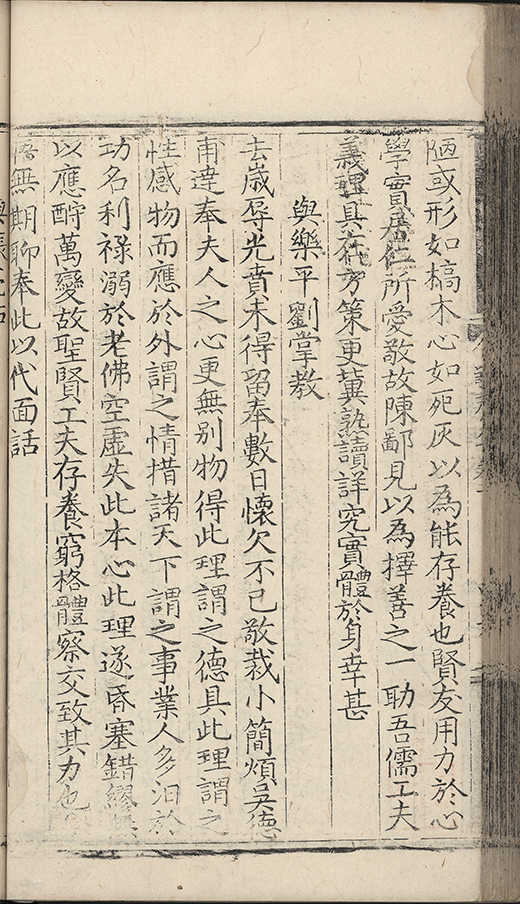 陋或形如槁木心如死灰以為能存養也賢友用力於心
學實居仁所愛敬故陳鄙見以為擇善之一助吾儒工夫
義理具在方策更冀熟讀詳究實體於身幸甚
與樂平劉掌教
去歲辱光賁未得留奉數日懷欠不已敬裁小簡煩吳德
甫達奉夫人之心更無別物得此理謂之德具此理謂之
性感物而應於外謂之情措諸天下謂之事業人多汨於
功名利祿溺於老佛空虛失此本心此理遂昏塞錯繆
以應酧萬變故聖賢工夫存養窮格體察交致其力也
無期聊奉此以代面話